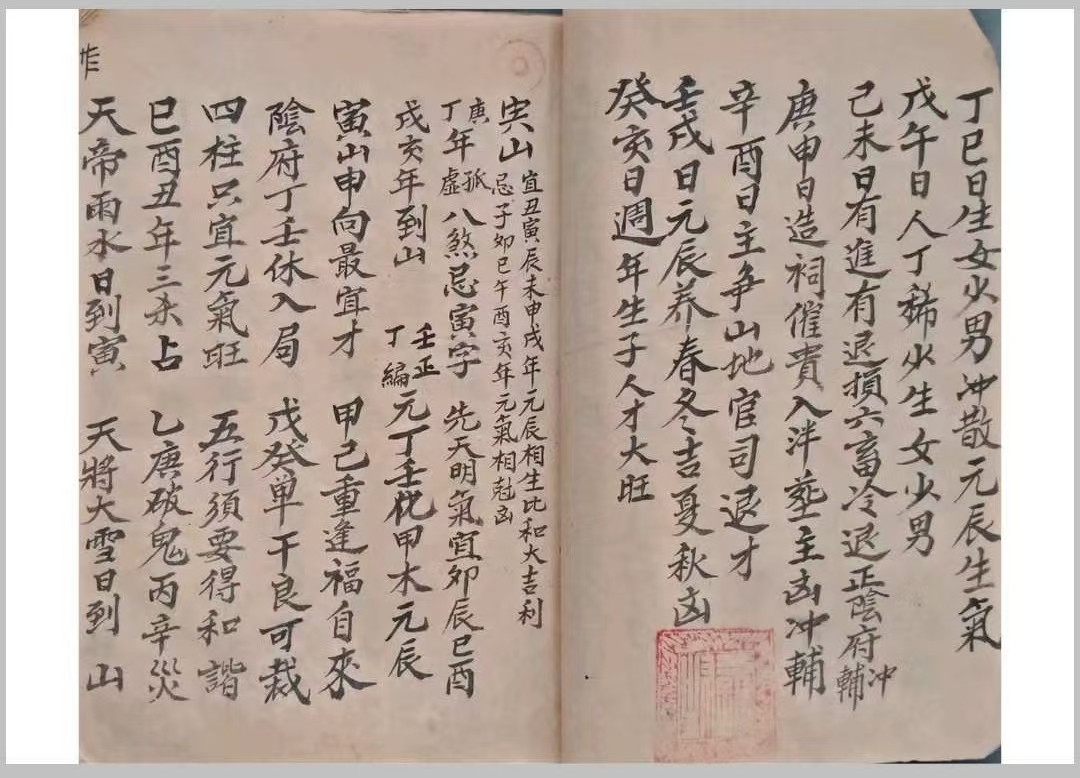 丁巳日生女少男冲散元辰生氣
戊午日人丁稀少生女少男
己未日有進有退損六畜冷退正陰府冲輔
庚申日造祠催貴入泮塟主凶冲輔
辛酉日主争山地官司退才
壬戌日元辰养春冬吉夏秋凶
癸亥日週年生子人才大旺
山宜丑寅辰未申戌年元辰相生比和大吉利
忌子卯巳午酉亥年元氣相尅凶
庚丁年孤虛八煞忌寅字 先天明氣宜卯辰巳酉
戌亥年到山 壬正丁編元丁壬化甲木元辰
寅山申向最宜才 甲己重逢福自來
陰府丁壬休入局 戊癸单干良可裁
四柱只宜元氣旺 五行須要得和諧
巳酉丑年三杀占 乙庚破鬼丙辛災
天帝雨水日到寅 天將大雪日到山